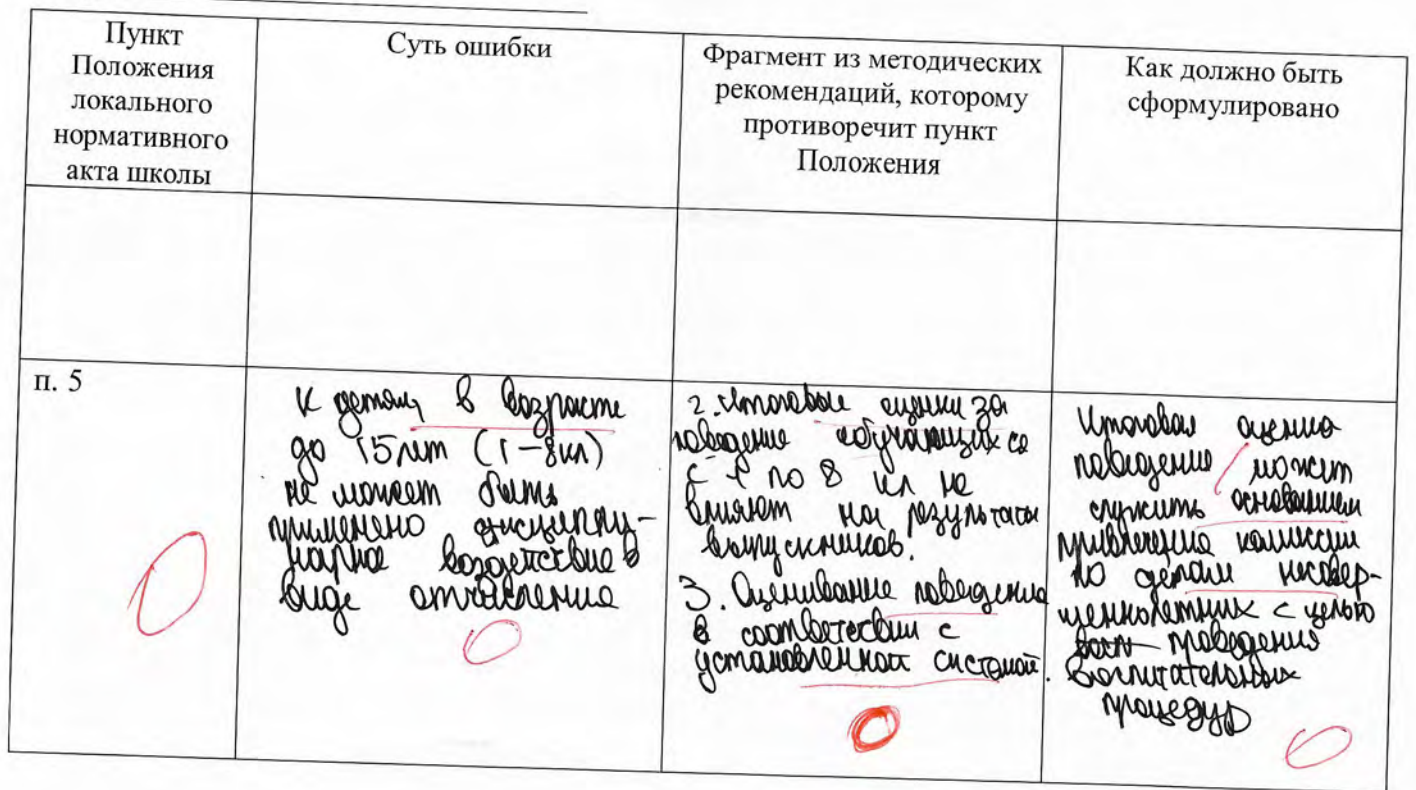 Пункт
Положения
локального
нормативного
акта школы
Суть ошибки
Фрагмент из методических
рекомендаций, которому
противоречит пункт
Положения
Как должно быть
сформулировано
п. 5
К детям в возрасте
до 15 лет (1-8кл)
не может быть
применено дисципли-
нарное воздействие в
виде отчисления
2. Итоговые оценки за
поведение обучающихся
с 1 по 8 кл не
влияют на результаты
выпускников.
3. Оценивание поведения
в соответствии с
установленной системой.
Итоговая оценка
поведение может
служить основанием
привлечения комиссии
по делам несовер-
шеннолетних с целью
проведения
воспитательных
процедур